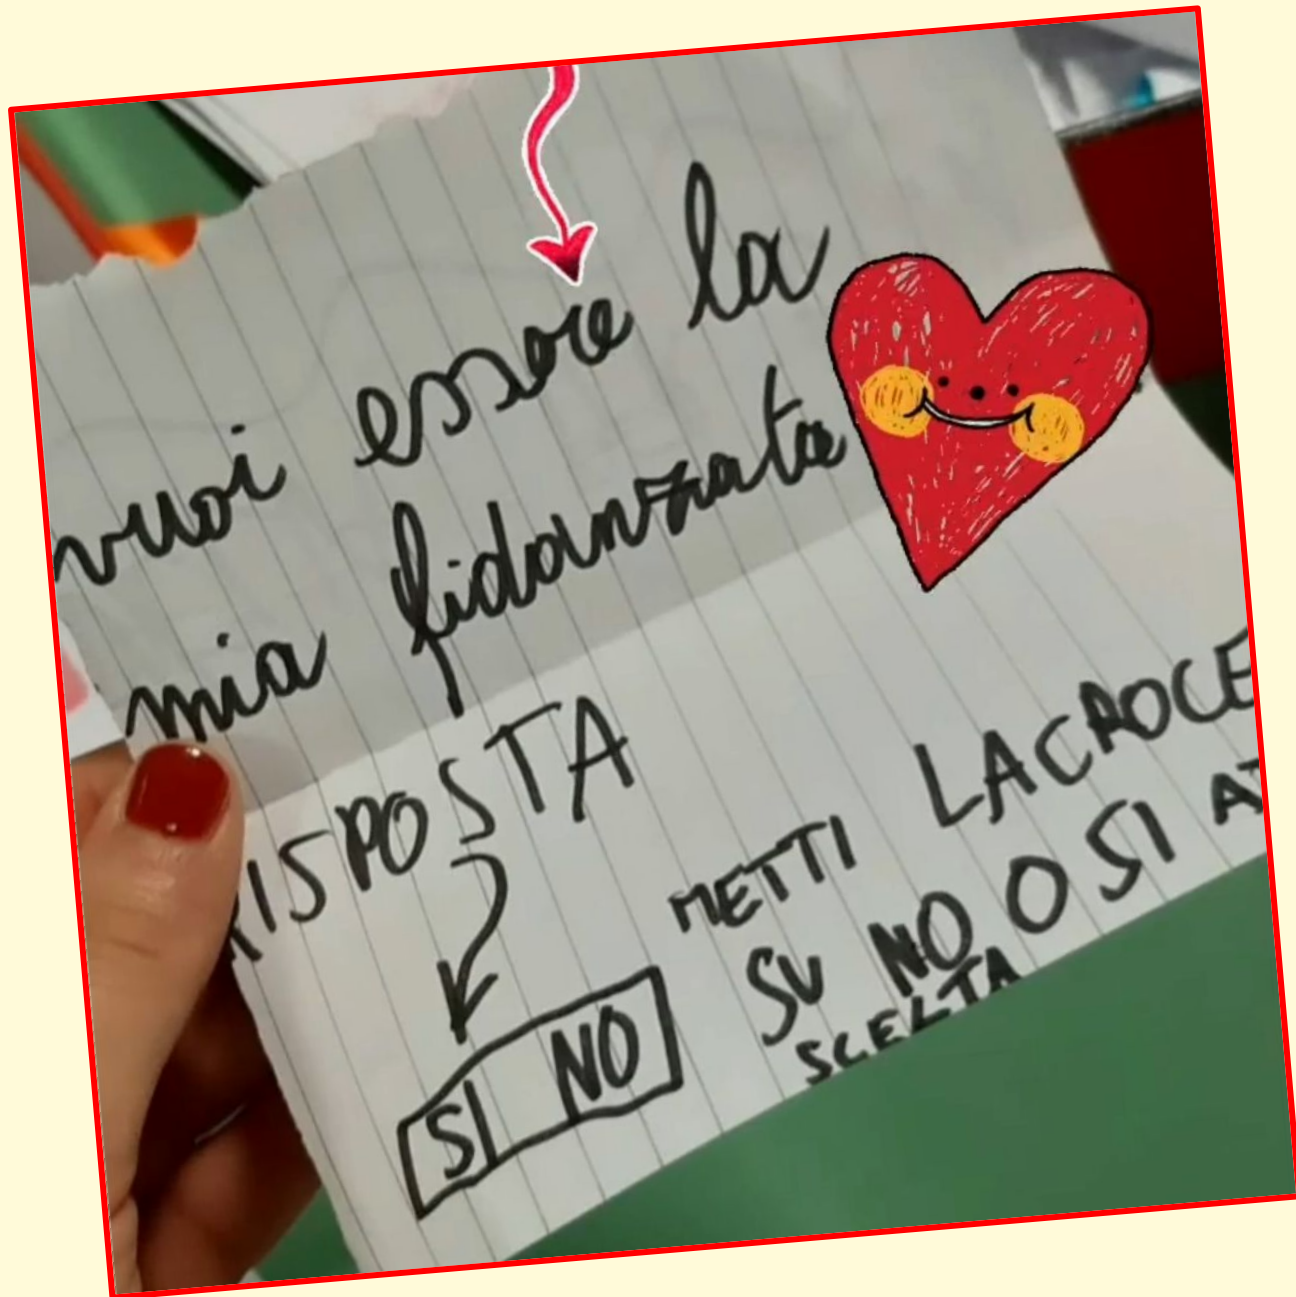 vuoi essere la
mia fidanzata
RISPOSTA
SI NO
METTI LA CROCE
SU NO O SI A
SCELTA